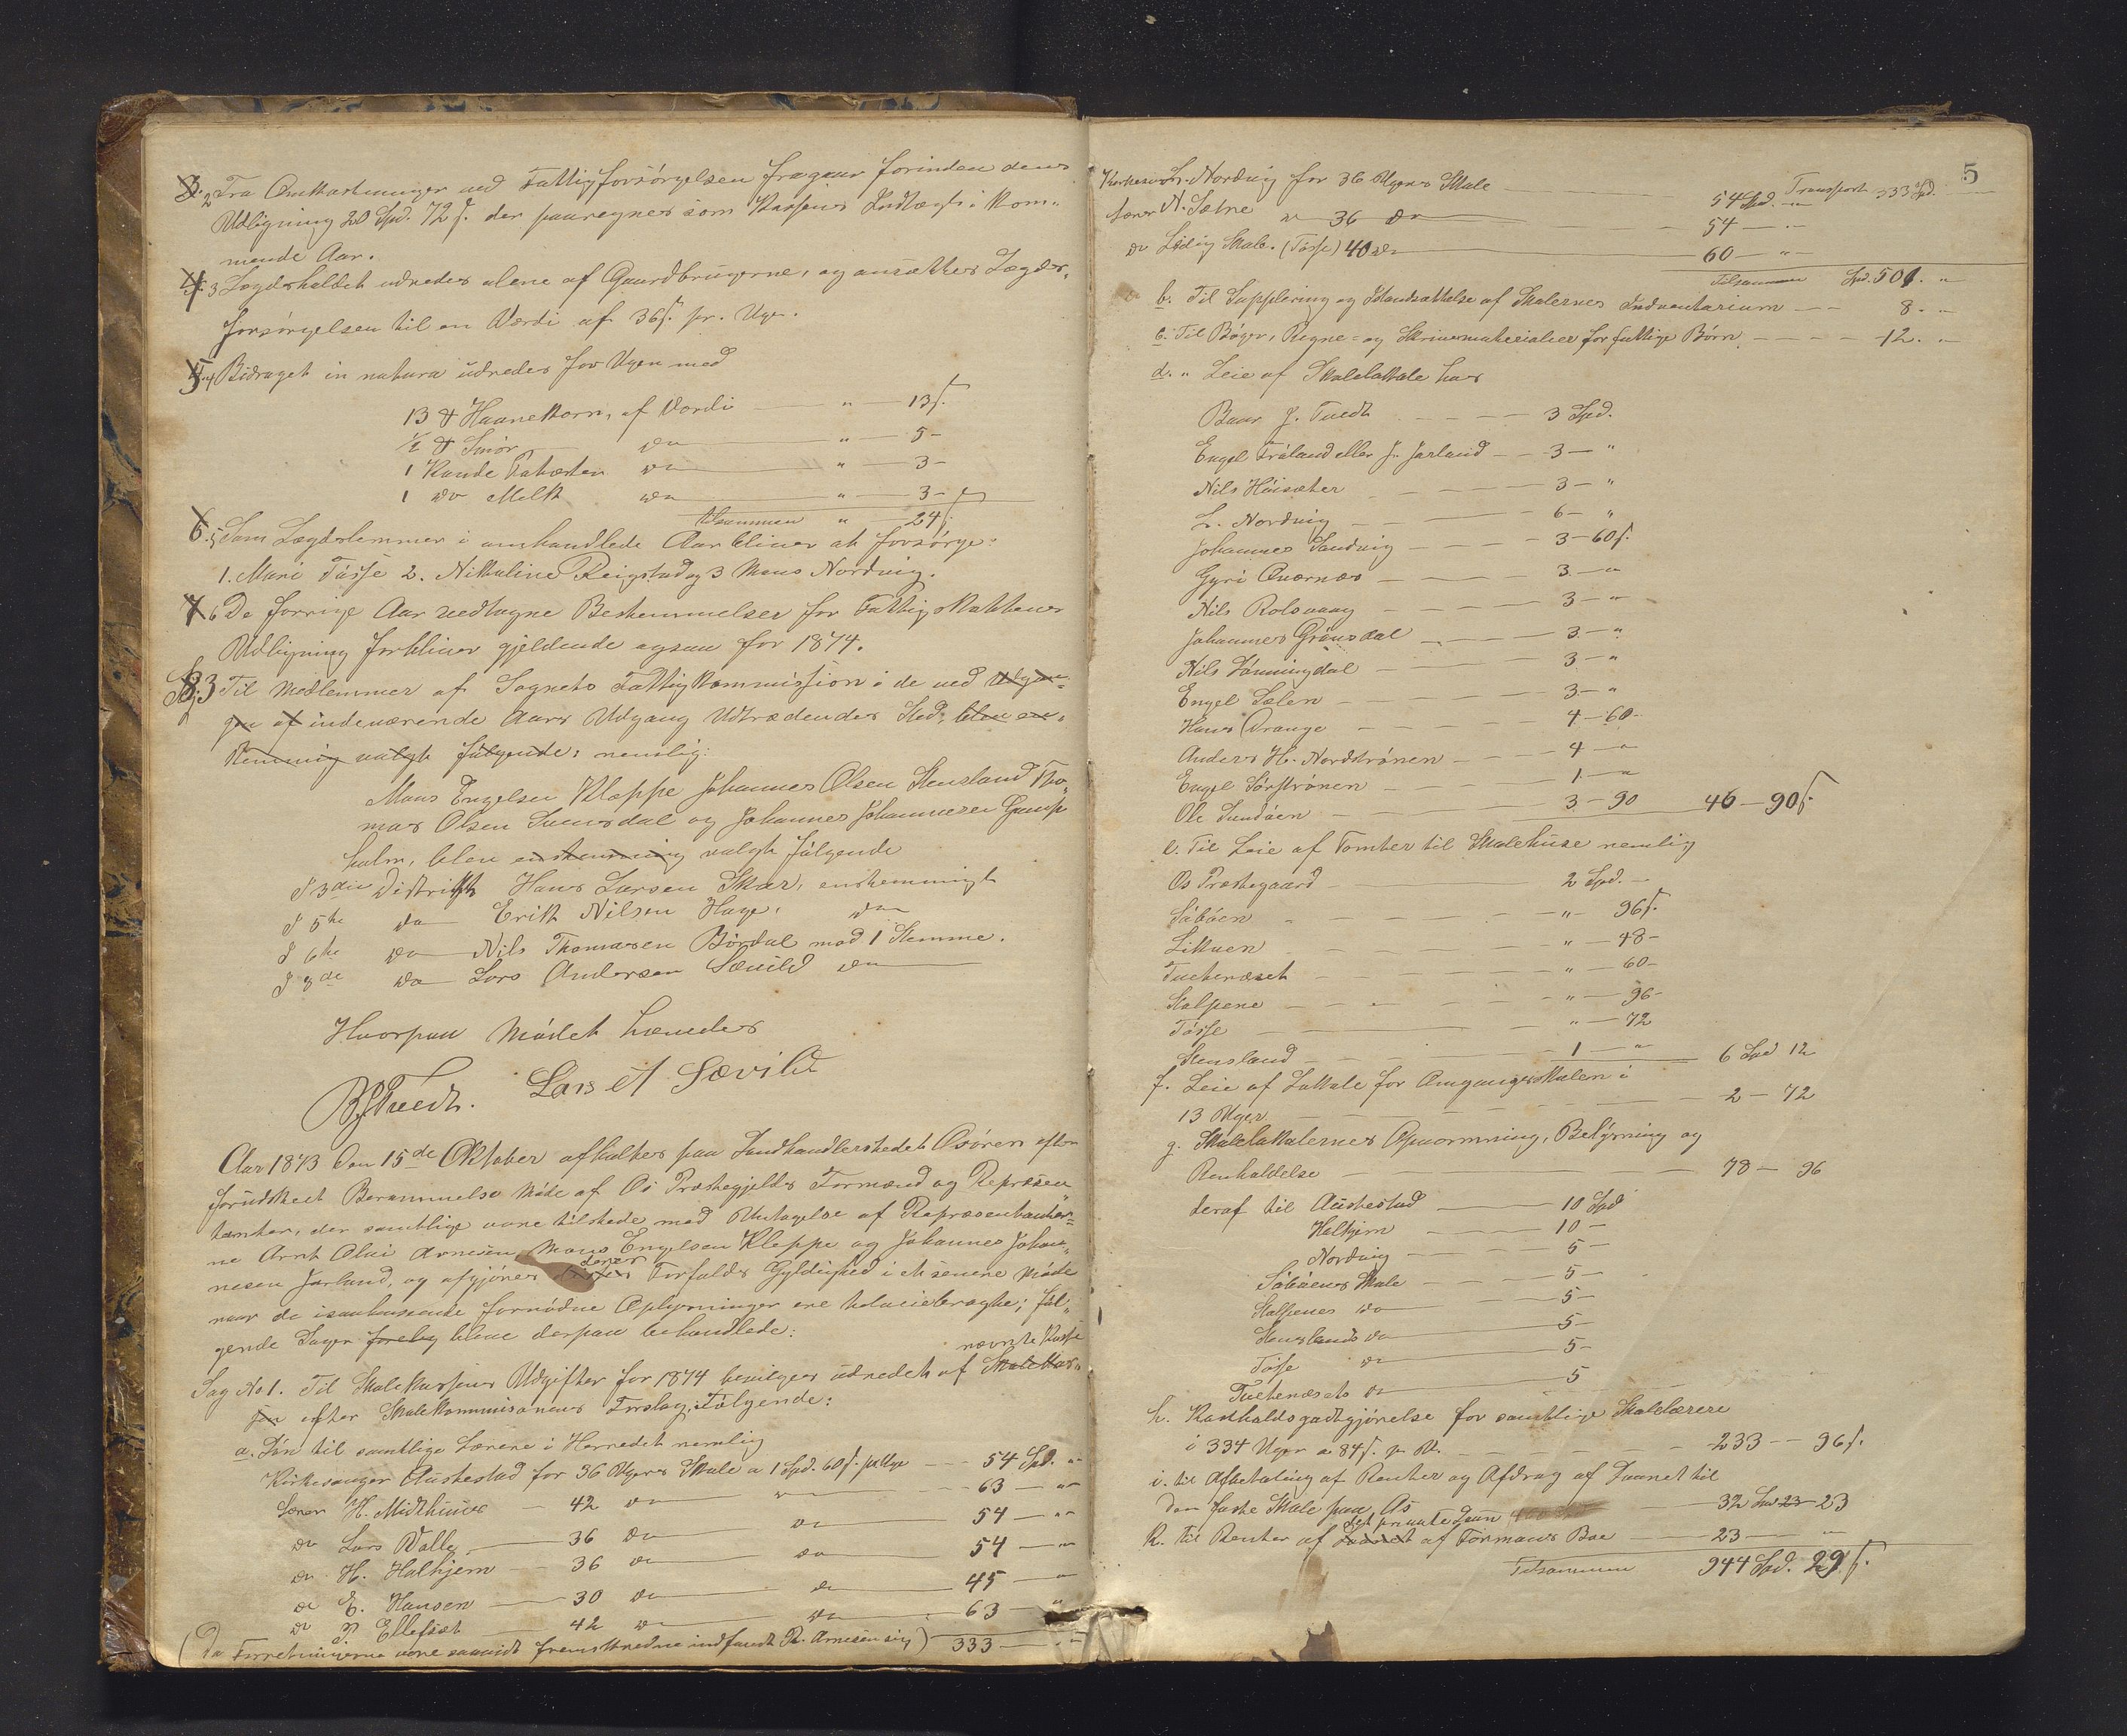 2 Fra Omkostninger ved Fattigforsørgelsen fragaar forinden dens
Udligning 20 Spd. 72 s. der paaregnes som Kassens Indtægt i kom-
mende Aar.
3 Lægdsholdet udredes alene af Gaardbrugerne, og ansættes Lægds-
forsørgelsen til en Værdi af 36 s. pr. Uge.
4 Bidraget in natura udredes for Ugen med
13 ℔ Havrekorn, af Værdi — " — 13 s.
½ ℔ Smør do — " — 5 -
1 Kande Poteter do — " — 3 -
1 do Melk do — " — 3 -
tilsammen " 24 s.
5 Som Lægdslemmer i omhandlede Aar bliver at forsørge:
1. Mari Tøsse 2. Nikoline Reigstad og 3 Mons Nordvig.
6 De forrige Aar vedtagne Bestemmelser for Fattigskattens
Udligning forbliver gjeldende ogsaa for 1874.
3 Til Medlemmer af Sognets Fattigkommission i de ved Udgan-
gen af indeværende Aars Udgang Udtrædendes Sted, blev en-
stemmig valgt følgende: nemlig:
Mons Engelsen Kleppe Johannes Olsen Stensland Tho-
mas Olsen Svensdal og Johannes Johannesen Gaasp
holm, blev enstemmig valgt følgende
I 3die Distrikt Hans Larsen Skar, enstemmigt
I 5te do Erik Nilsen Hage, do
I 6te do Nils Thomasen BøRdal med 1 Stemme.
I 8de do Lars Andersen Sævild do
Hvorpaa Mødet hævedes
B J Tvedt. Lars A Sævild
Aar 1873 Den 15de Oktober afholdtes paa Landhandlerstedet Osøren efter
forudskeet Berammelse Møde af Os Præstegjelds Formænd og Repræsen
tanter, der samtlige vare tilstede med Undtagelse af Repræsentanter-
ne Arnt Olai Arnesen Mons Engelsen Kleppe og Johannes Johan-
nesen Jarland, og afgjøres deres Forfalds Gyldighed i et senere Møde
naar de isaahenseende fornødne Oplysninger ere tilveiebragte; føl-
gende Sager foreleg bleve derpaa behandlede:
Sag No 1. Til Skolekassens Udgifter for 1874 bevilges udredet af Skolekas- nævnte Kasse
sen efter Skolekommisionens Forslag Følgende:
a. Løn til samtlige Lærere i Herredet nemlig
Kirkesanger Austestad for 36 Ugers Skole a 1 Spd. 60 s. pr. Uge — 54 Spd. "
Lærer H. Midthuus — 42 do — do — 63 — "
do Lars Valle — 36 do — do — 54 — "
do H. Halhjem — 36 do — do — 54 — "
do E. Hansen — 30 do — do — 45 — "
do P. Ellefsæt — 42 do — do — 63 — "
(Da Forretningerne vare saavidt fremskredne indfandt R. Arnesen sig) 333 — "
5
Transport 333 Spd.
Kirkesanger L. Nordvig for 36 Ugers Skole — 54 Spd. "
Lærer N. Sætre do 36 do — 54 — "
do Ledig Skole. (Tøsse) 40 do — 60 — "
Tilsammen Spd. 501. "
b. Til Supplering og Istandsættelse af Skolernes Indventarium — 8. "
c. Til Bøger, Regne- og Skrivematerialier for fattige Børn — 12. "
d. " Leie af Skolelokale hos
Baar J. Tvedt — 3 Spd.
Engel Frøland eller J. Jarland — 3 — "
Nils Høisæter — 3 — "
L. Nordvig — 6 — "
Johannes Sandvig — 3 — 60 s.
Gyri Qværnes — 3 — "
Nils Rolsvaag — 3 — "
Johannes Grønsdal — 3 — "
Nils Lønningdal — 3 — "
Engel Sælen — 3 — "
Hans Drange — 4 — 60 -
Anders H. Nordstrønen — 4 — "
Engel Sørstrønen — 1 — "
Ole Sundøen — 3 — 90 46 — 90 s.
e. Til Leie af Tomter til Skolehuse nemlig
Os Præstegaard — 2 Spd. —
Søbøen — " — 96 s.
Lekven — " — 48 -
Tuetenæset — " — 60 -
Kolskene — " — 96 -
Tøsse — " — 72
Stensland — 1 — " 6 Spd 12
f. Leie af Lokale for Omgangsskolen i
13 Uger — 2 — 72
g. Skolelokalernes Opvarmning, Belysning og
Renholdelse — 78 — 96
deraf til Austestad — 10 Spd
Halhjem — 10 —
Nordvig — 5 -
Søbøens Skole — 5 -
Kolskenes do — 5 -
Stenslands do — 5 -
Tøsse do — 5 -
Tuetenæsets do — 5
h. Kostholdsgodtgjørelse for samtlige Skolelærere
i 334 Uger a 84 s. pr. U. — 233 — 96 s.
i. til Afbetaling af Renter og Afdrag af Laanet til
den faste Skole paa Os — 32 Spd 23 23
k. Til Renter af Laanet det private Laan af Formans Boe — 23 — "
Tilsammen 944 Spd. 29 s.